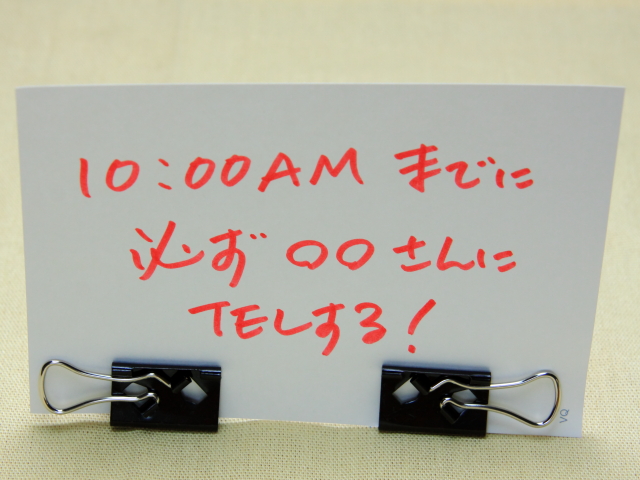 10:00AM までに
必ず 〇〇さんに
TELする!
VQ